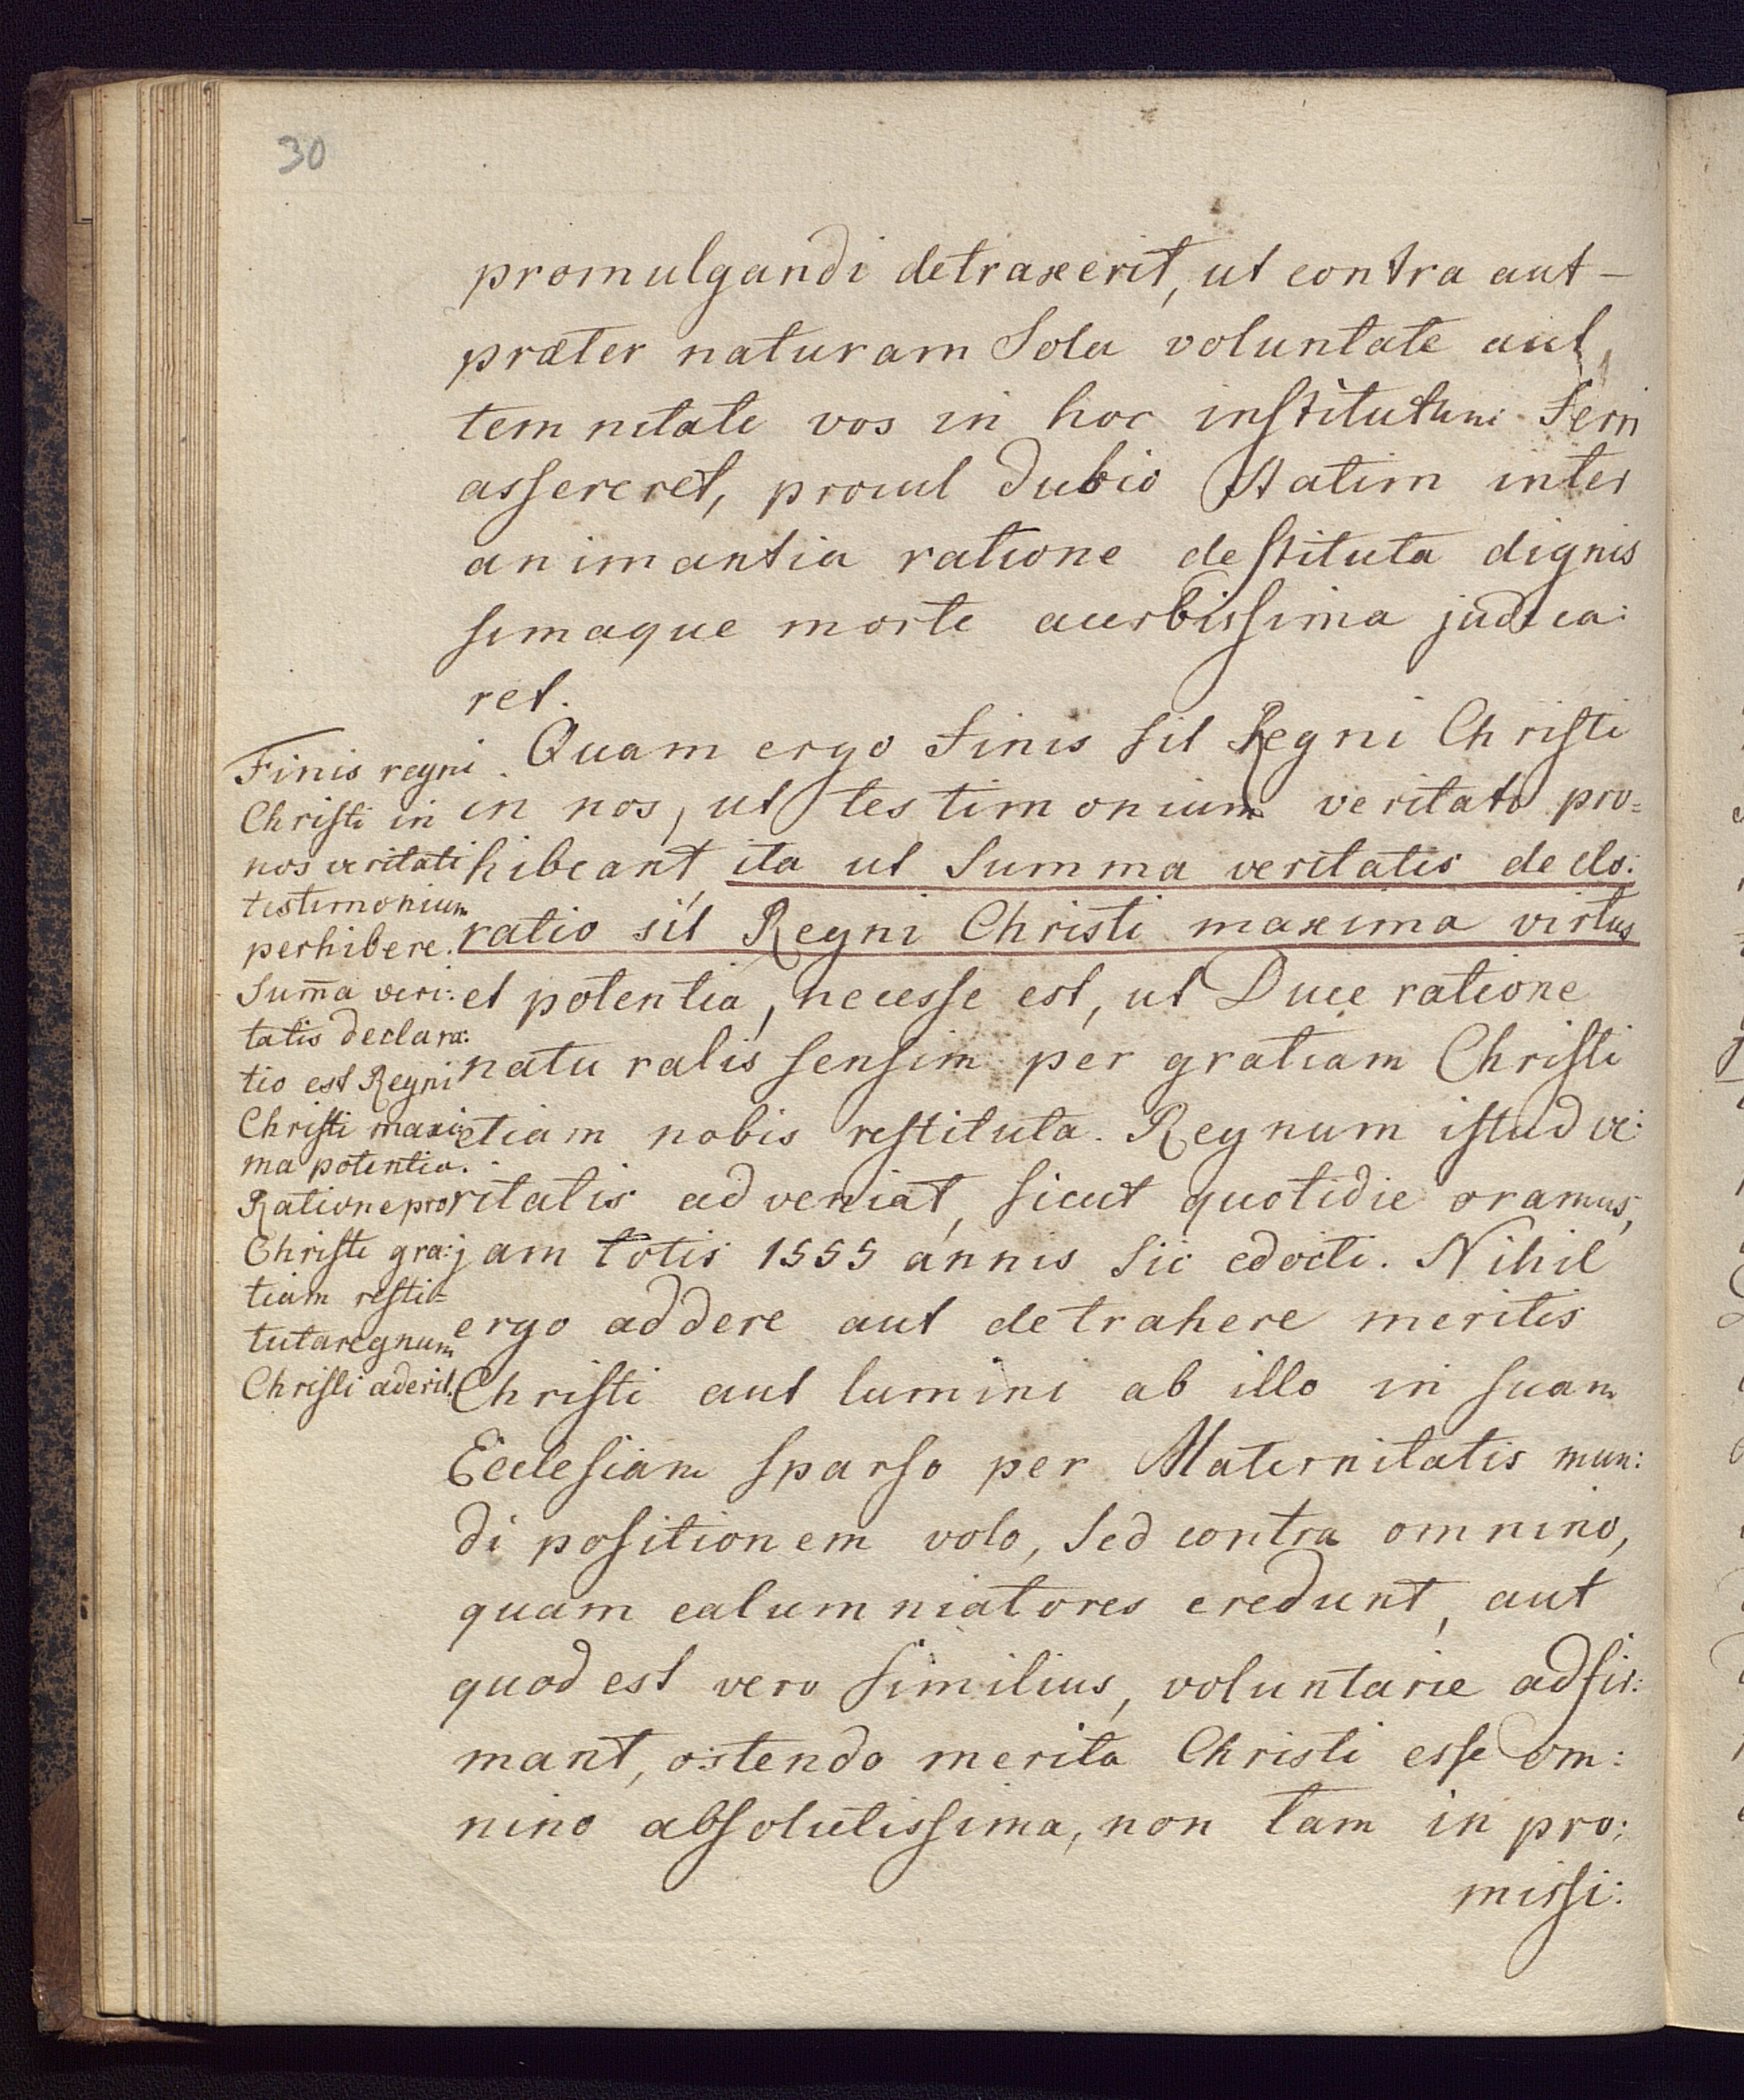 30
promulgandi detraxerit, ut contra aut-
præter naturam Sola voluntate aut
temnitate vos in hoc institutum Ferri
assereret, procul dubio Statim inter
animantia ratione destituta dignis
simaque morte acerbissima judica:
ret.
Quam ergo Finis sit Regni Christi
in nos, ut testimonium veritati pro=
hibeant, ita ut Summa veritatis declo:
ratio sit Regni Christi maxima virtus
et potentia, necesse est, ut Duce ratione
naturalis sensim per gratiam Christi
etiam nobis restituta. Regnum istud ve:
ritatis adveniat, sicut quotidie oramus,
jam totis 1555 annis sic edocti. Nihil
ergo addere aut detrahere meritis
Christi aut lumini ab illo in suam
Ecclesiam sparso per Maternitatis mun:
di positionem volo, Sed contra omnino,
quam calumniatores credunt, aut
quod est vero similius, voluntarie adfir:
mant, ostendo merita Christi esse om:
nino absolutissima, non tam in pro:
missi:
Finis regni
Christi in
nos veritati
testimonium
perhibere.
Sum̄a veri:
tatis declara:
tio est Regni
Christi maxi:
ma potentia.
Ratione pro
Christi gra:
tiam resti=
tuta regnum
Christi aderit.